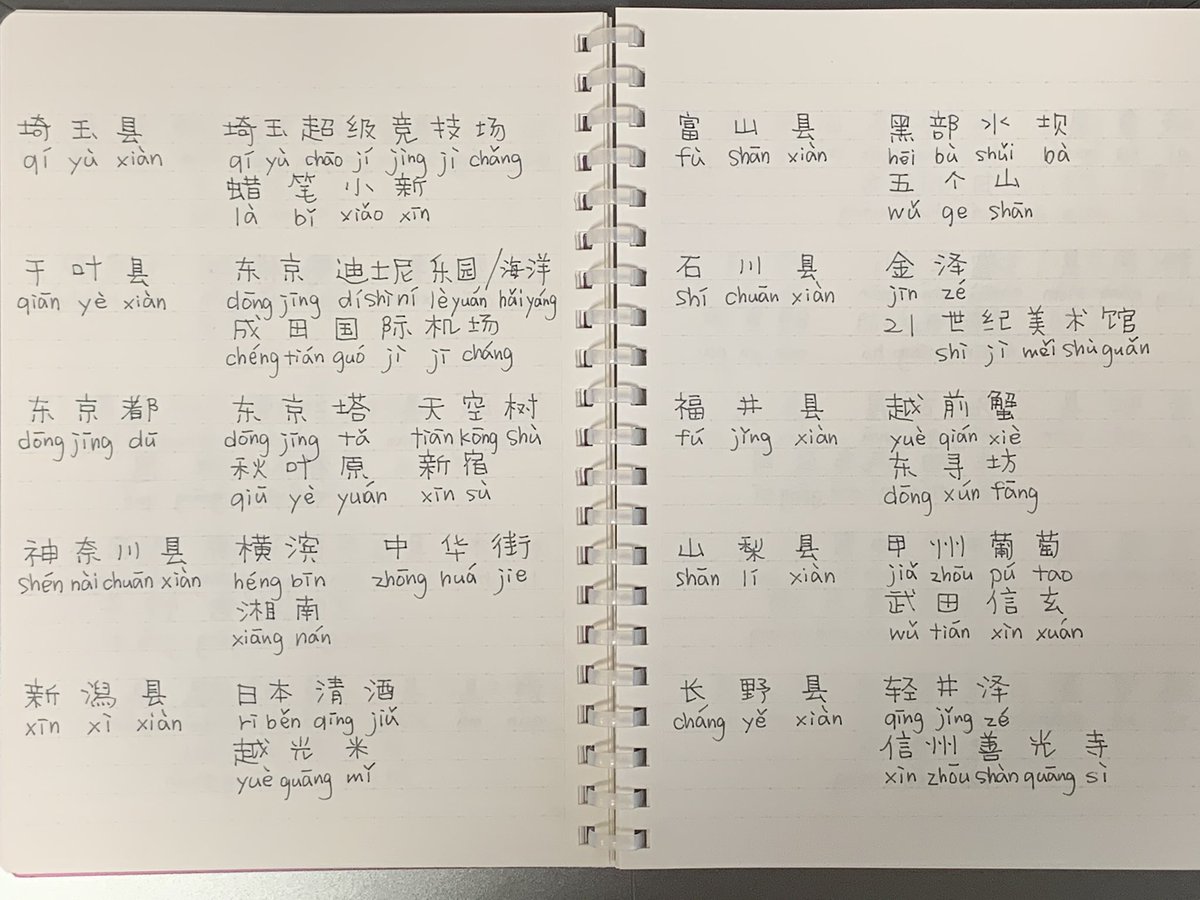 埼玉县 埼玉超级竞技场
qí yù xiàn qí yù chāo jí jìng jì chǎng
蜡笔小新
là bǐ xiǎo xīn
千叶县 东京 迪士尼 乐园/海洋
qiān yè xiàn dōng jīng díshìní lèyuán hǎiyáng
成田国际机场
chéng tián guó jì jī cháng
东京都 东京塔 天空树
dōng jīng dū dōng jīng tǎ tiān kōng shù
秋叶原 新宿
qiū yè yuán xīn sù
神奈川县 横滨 中华街
shén nài chuān xiàn héng bīn zhōng huá jie
湘南
xiāng nán
新潟县 日本清酒
xīn xì xiàn rì běn qīng jiǔ
越光米
yuè guāng mǐ
富山县 黑部水坝
fù shān xiàn hēi bù shuǐ bà
五个山
wǔ ge shān
石川县 金泽
shí chuān xiàn jīn zé
21世纪美术馆
shì jì měi shù guǎn
福井县 越前蟹
fú jǐng xiàn yuè qián xiè
东寻坊
dōng xún fāng
山梨县 甲州葡萄
shān lí xiàn jiǎ zhōu pú tao
武田信玄
wǔ tián xìn xuán
长野县 轻井泽
cháng yě xiàn qīng jǐng zé
信州善光寺
xìn zhōu shàn guāng sì